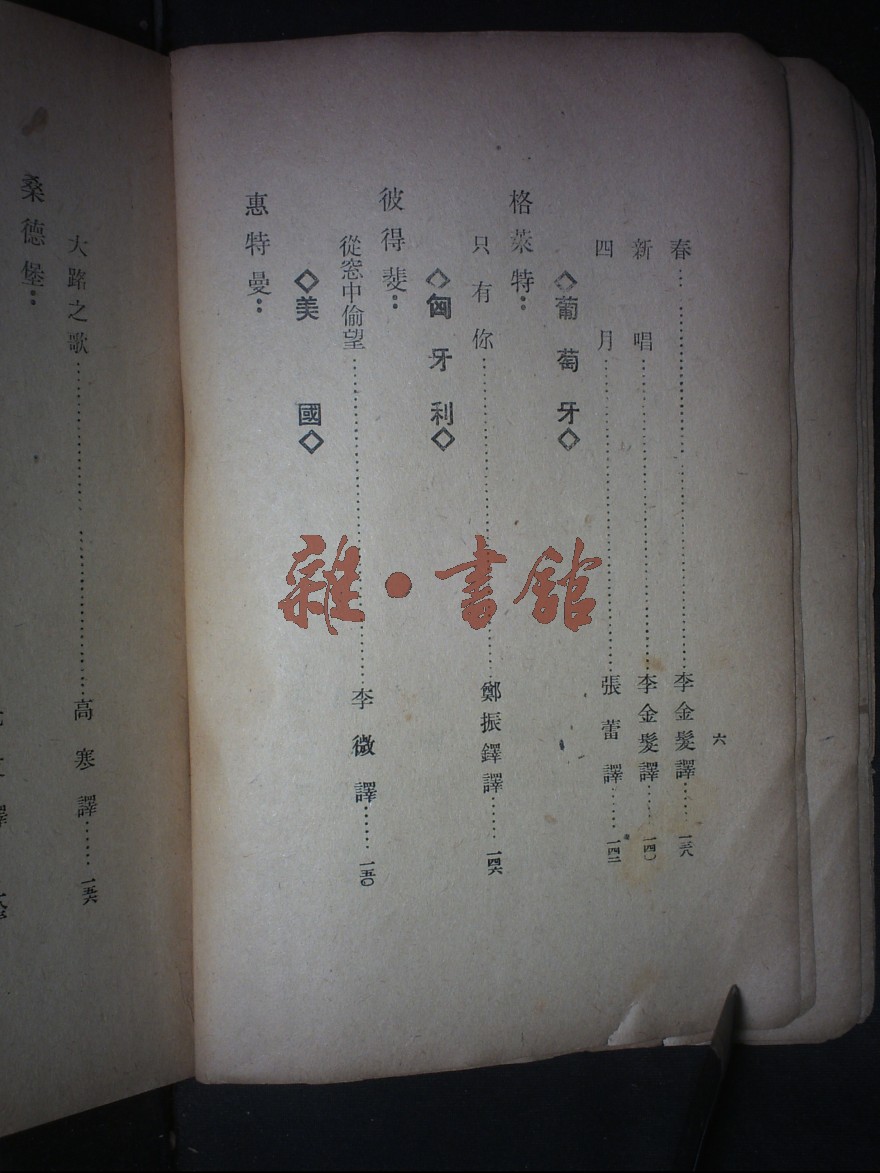 六
春……………………李金髮譯……一三八
新唱……………………李金髮譯……一四〇
四月……………………張蕾譯……一四二
◇葡萄牙◇
格萊特：
只有你……………………鄭振鐸譯……一四六
◇匈牙利◇
彼得斐：
從窓中偷望……………………李微譯……一五〇
◇美國◇
惠特曼：
大路之歌……………………高寒譯……一五六
桑德堡：
譯
雜·書館